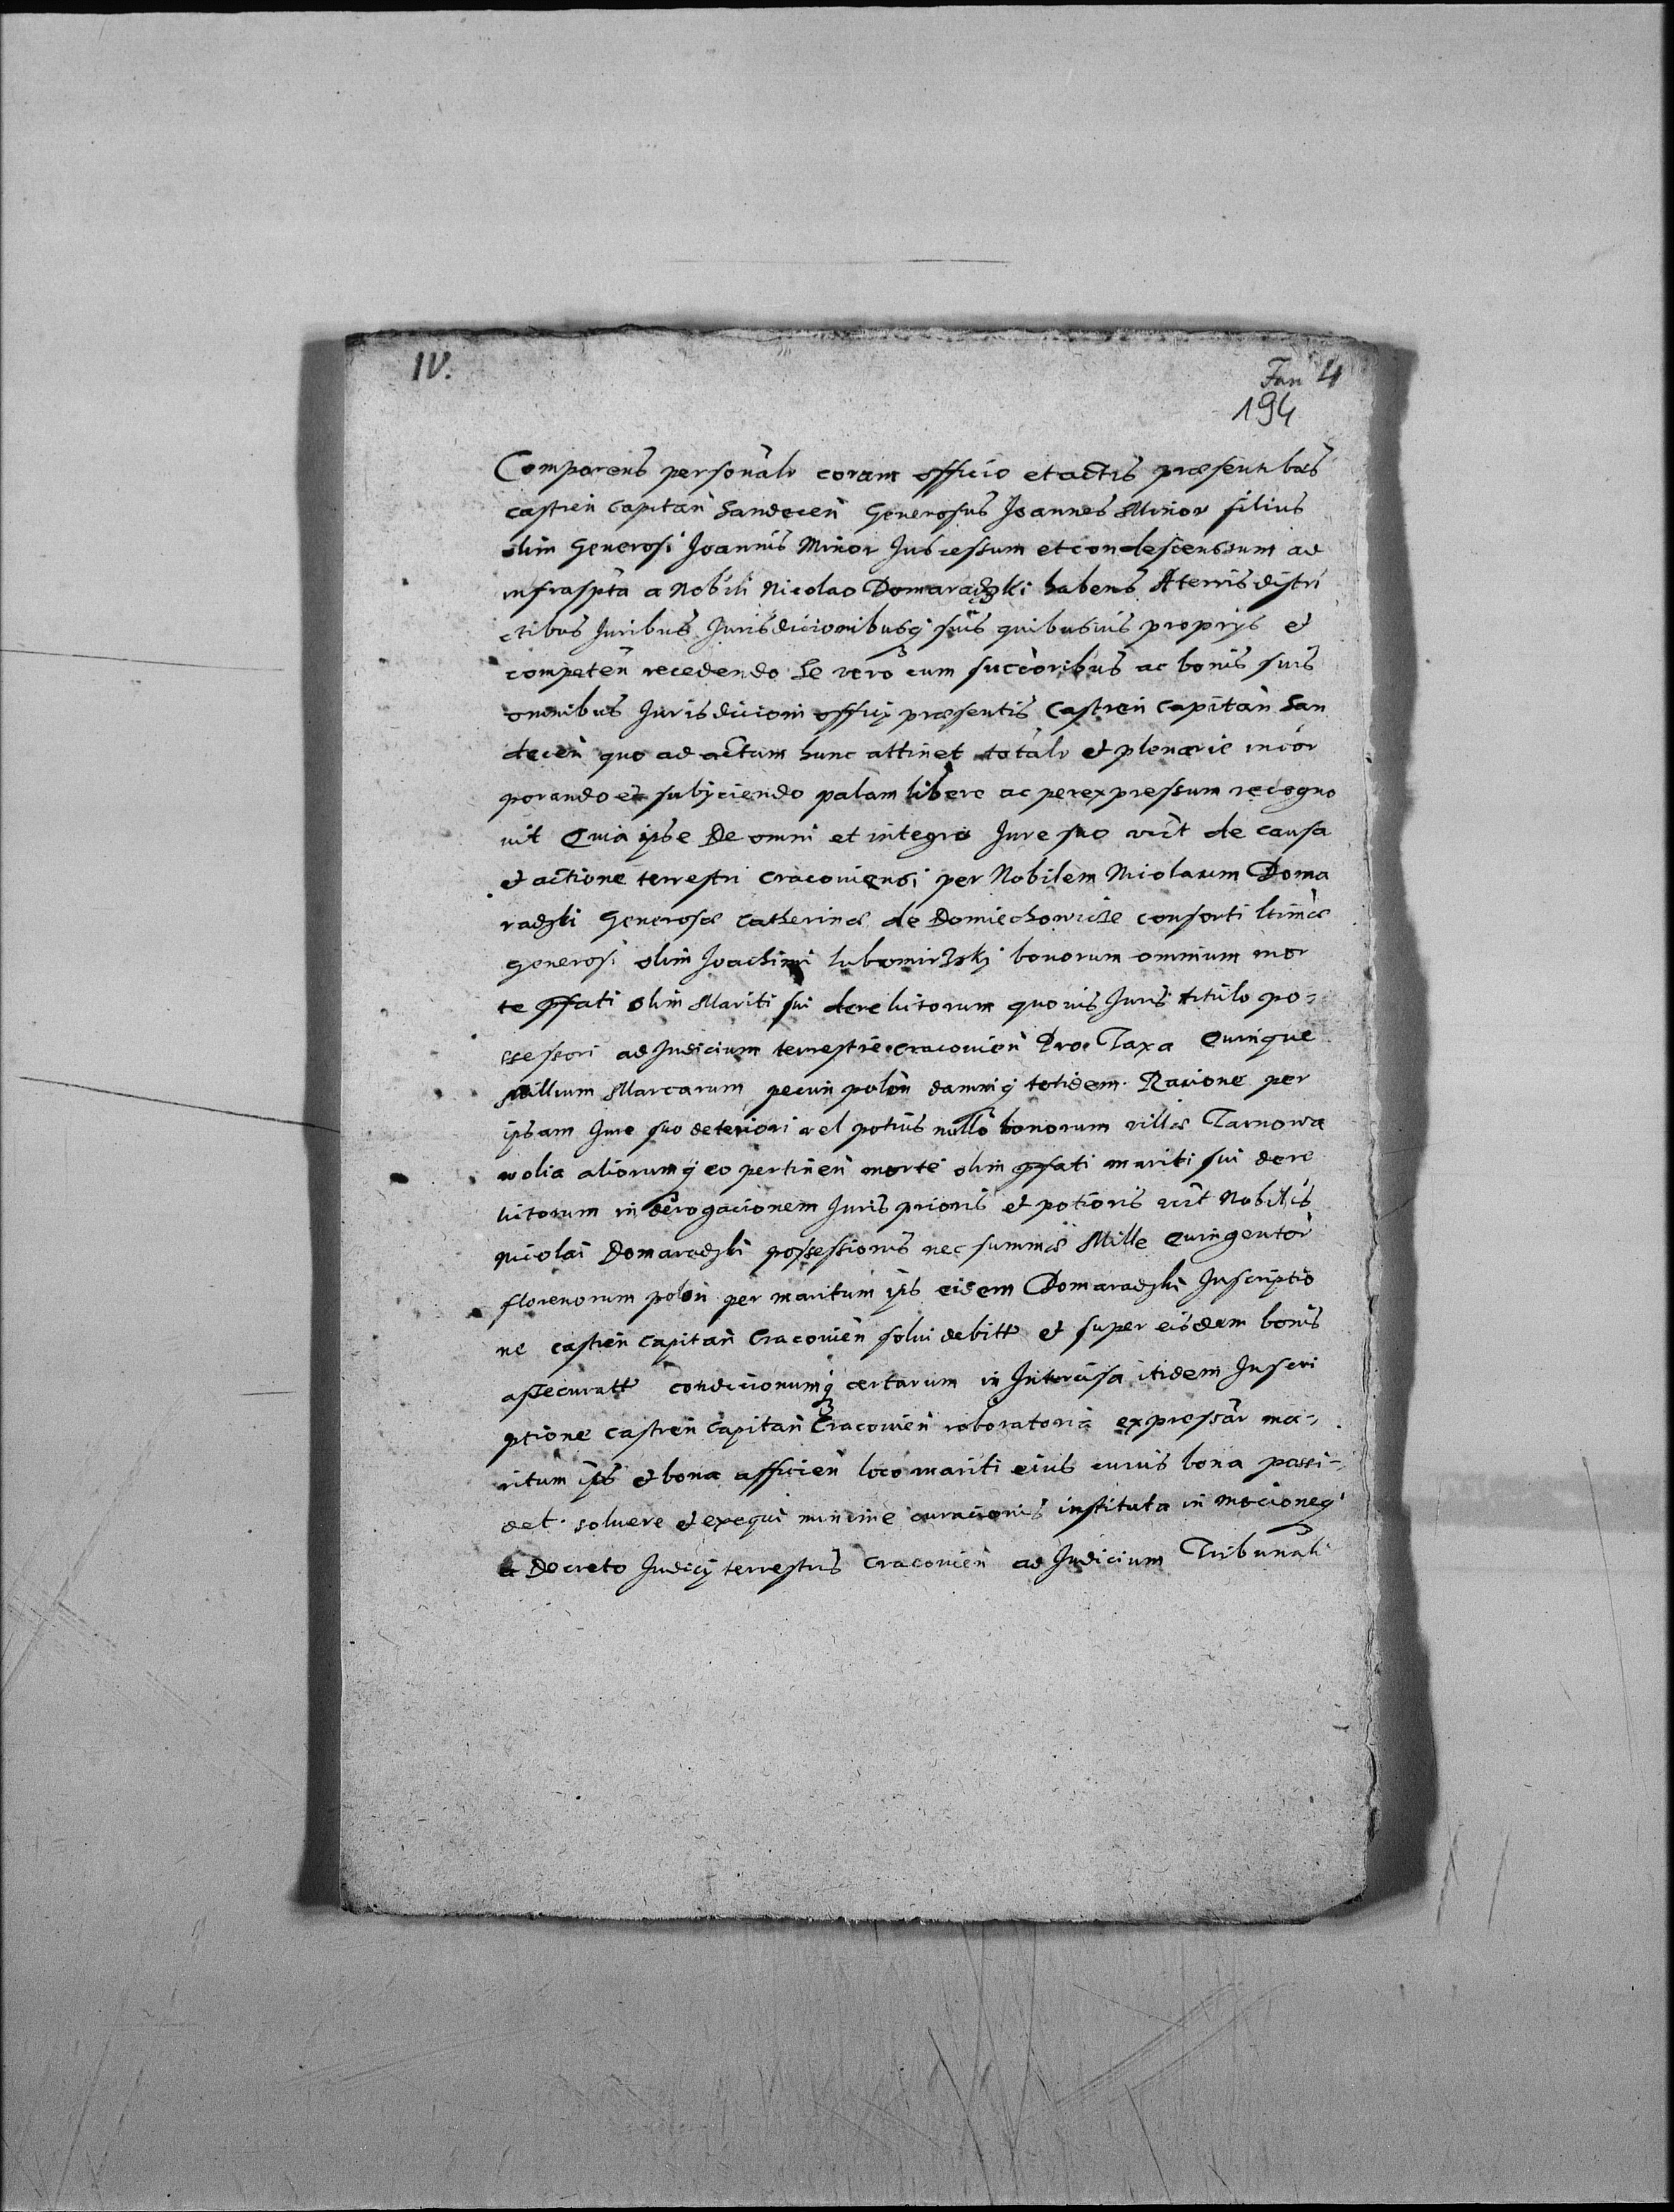 IV.
Jan 4
194
Comparens personalr coram officio et actis præsentibus
castren Capitan Sandecen Generosus Joannes Minor filius
olim Generosi Joannis Minor Jus cessum et condescensum ad
infraspta a Nobili Nicolao Domaradzki habens A terris distri
ctibus Juribus Jurisdicionibusq suis quibusuis proprys et
competen recedendo Se vero cum succoribus ac bonis suis
omnibus Jurisdicioni officy præsentis Castren Capitan San
decen quo ad actum hunc attinet totalr et plenarie incor
porando et subyciendo palam libere ac per expressum recogno
uit Quia ipse De omni et integro Jure suo vcit de causa
et actione terrestri Cracouiensi per Nobilem Nicolaum Doma
radzki Generosæ Catherinæ de Domiechowicze consorti ltimæ
generosi olim Joachimi lubomirski bonorum omnium mor
te pfati olim Mariti sui derelictorum quouis Juris titulo po-
ssessori ad Judicium terrestre Cracouien Pro Taxa Quinque
Millium Marcarum pecun polon damniq totidem Racione per
ipsam Jure suo deteriori vel potius nullo bonorum villæ Tarnowa
wolia aliorumq eo pertinen morte olim pfati mariti sui dere
lictorum in derogacionem Juris prioris et potioris vcit Nobilis
Nicolai Domaradzki possessionis nec summæ Mille Quingentor
florenorum polon per maritum ips eidem Domaradzki Inscriptio
ne castren Capitan Cracouien solui debitt et super eisdem bonis
assecuratt condicionumq certarum in Intercisa itidem Inscri
ptione castren Capitan Cracouien roboratoria expressar ma-
ritum ips et bona afficien loco mariti eius cuius bona possi-
det soluere et exequi minime curacionis instituta in mocioneq
a Decreto Judicy terrestris Cracouien ad Judicium Tribunali